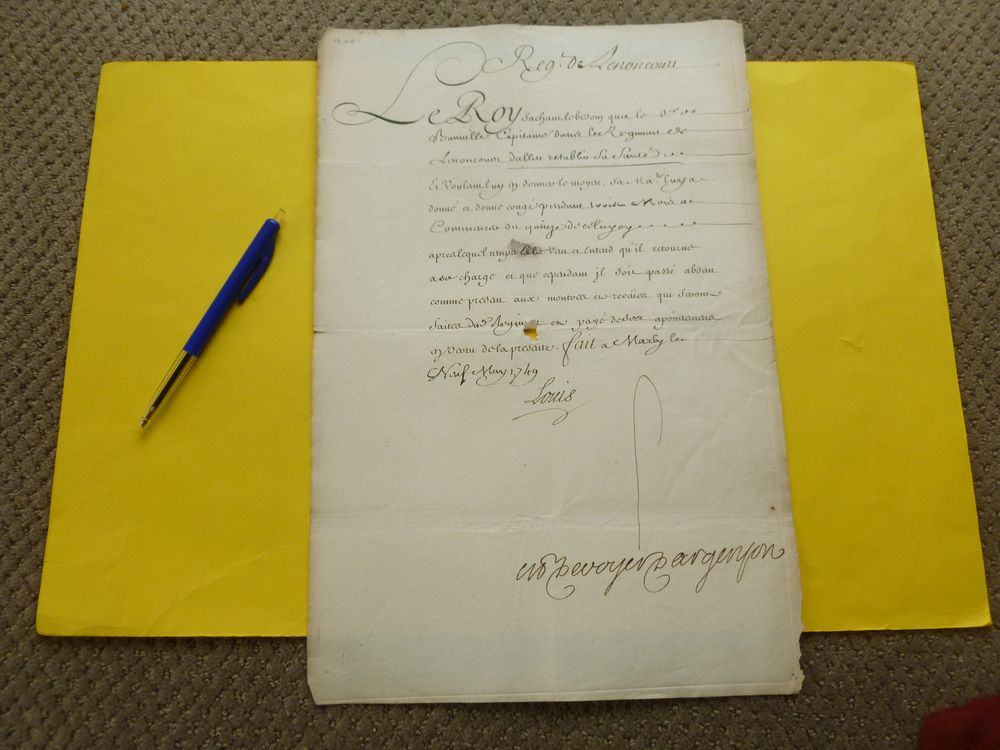 Reg.t de Lenoncourt
Le Roy sachant le besoin que le S.r de
Bainville Capitaine dans le Regiment de
Lenoncour d'aller retablir sa santé
Et Voulant luy en donner le moyen, Sa Ma.té luy a
donné et donne congé pendant trois Mois a
Commencer du quinze de
apres lequel temps Elle veut et Entend qu'il retourne
a sa charge et que cependant jl soit passé absan
comme presan aux montres et reveües qui seront
faites dud Regiment et payé de ses apointemens
en Vertu de la presente. fait a Marly le
Neuf May 1749
Louis
M de voyer d'argenson